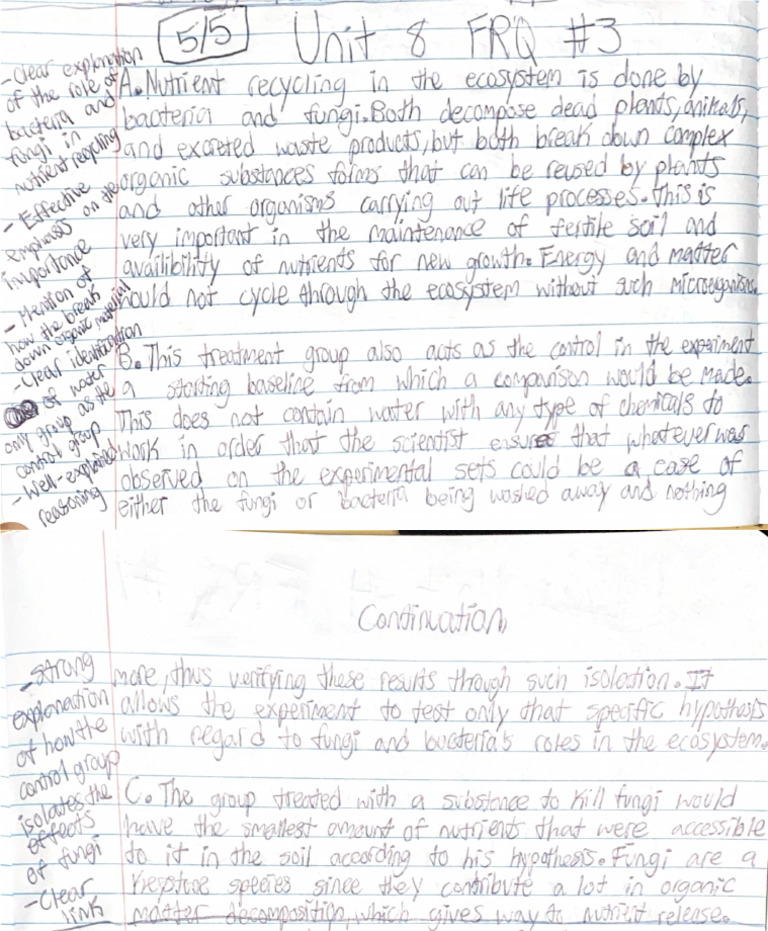 5/5 Unit 8 FRQ #3
-Clear explanation
of the role of
bacteria and
fungi in
nutrient recycling
- Effective
emphasis on the
importance
- Mention of
how the break
down organic material
-Clear identification
of water
only group as the
control group
- Well-explained
reasoning
A. Nutrient recycling in the ecosystem is done by
bacteria and fungi. Both decompose dead plants, animals,
and excreted waste products, but both break down complex
organic substances forms that can be reused by plants
and other organisms carrying out life processes. This is
very important in the maintenance of fertile soil and
availibility of nutrients for new growth. Energy and matter
would not cycle through the ecosystem without such microorganisms.
B. This treatment group also acts as the control in the experiment
a starting baseline from which a comparison would be made.
This does not contain water with any type of chemicals to
work in order that the scientist ensures that whatever was
observed on the experimental sets could be a case of
either the fungi or bacteria being washed away and nothing
Continuation
-strong
explanation
of how the
control group
isolates the
effects
of fungi
-Clear
link
more, thus verifying these results though such isolation. It
allows the experiment to test only that specific hypothesis
with regard to fungi and bacteria's roles in the ecosystem.
C. The group treated with a substance to kill fungi would
have the smallest amount of nutrients that were accessible
to it in the soil according to his hypothesis. Fungi are a
keystone species since they contribute a lot in organic
matter decomposition, which gives way to nutrient release.